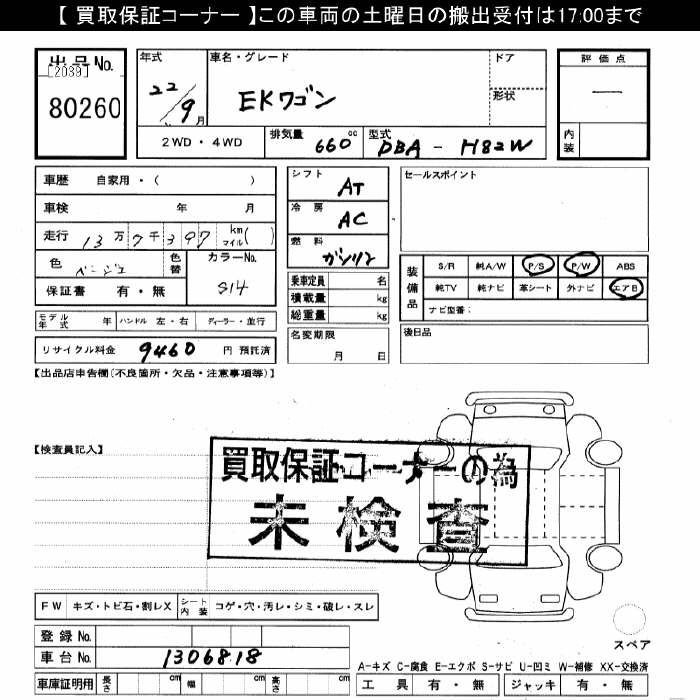 【 買取保証コーナー 】この車両の土曜日の搬出受付は17:00まで
出品No.
[2039]
80260
年式
22/9月
車名・グレード
EKワゴン
ドア
形状
評価点
—
内装
2WD・4WD
排気量 660cc
型式 DBA - H82W
車歴 自家用・( )
車検 年 月
走行 13万7千397 km マイル( )
色 ベージュ 色替
カラーNo. S14
保証書 有・無
シフト AT
冷房 AC
燃料 ガソリン
乗車定員 名
積載量 kg
総重量 kg
セールスポイント
装備品
S/R 純A/W P/S P/W ABS
純TV 純ナビ 革シート 外ナビ エアB
ナビ型番:
モデル年式 年 ハンドル 左・右 ディーラー・並行
名変期限 月 日
後日品
リサイクル料金 9460 円 預託済
【出品店申告欄(不良箇所・欠品・注意事項等)】
【検査員記入】
買取保証コーナーの為
未検査
FW キズ・トビ石・割レX シート内装 コゲ・穴・汚レ・シミ・破レ・スレ
登録No.
車台No. 1306818
スペア
A-キズ C-腐食 E-エクボ S-サビ U-凹ミ W-補修 XX-交換済
車庫証明用 長さ cm 幅 cm 高さ cm
工具 有・無 ジャッキ 有・無